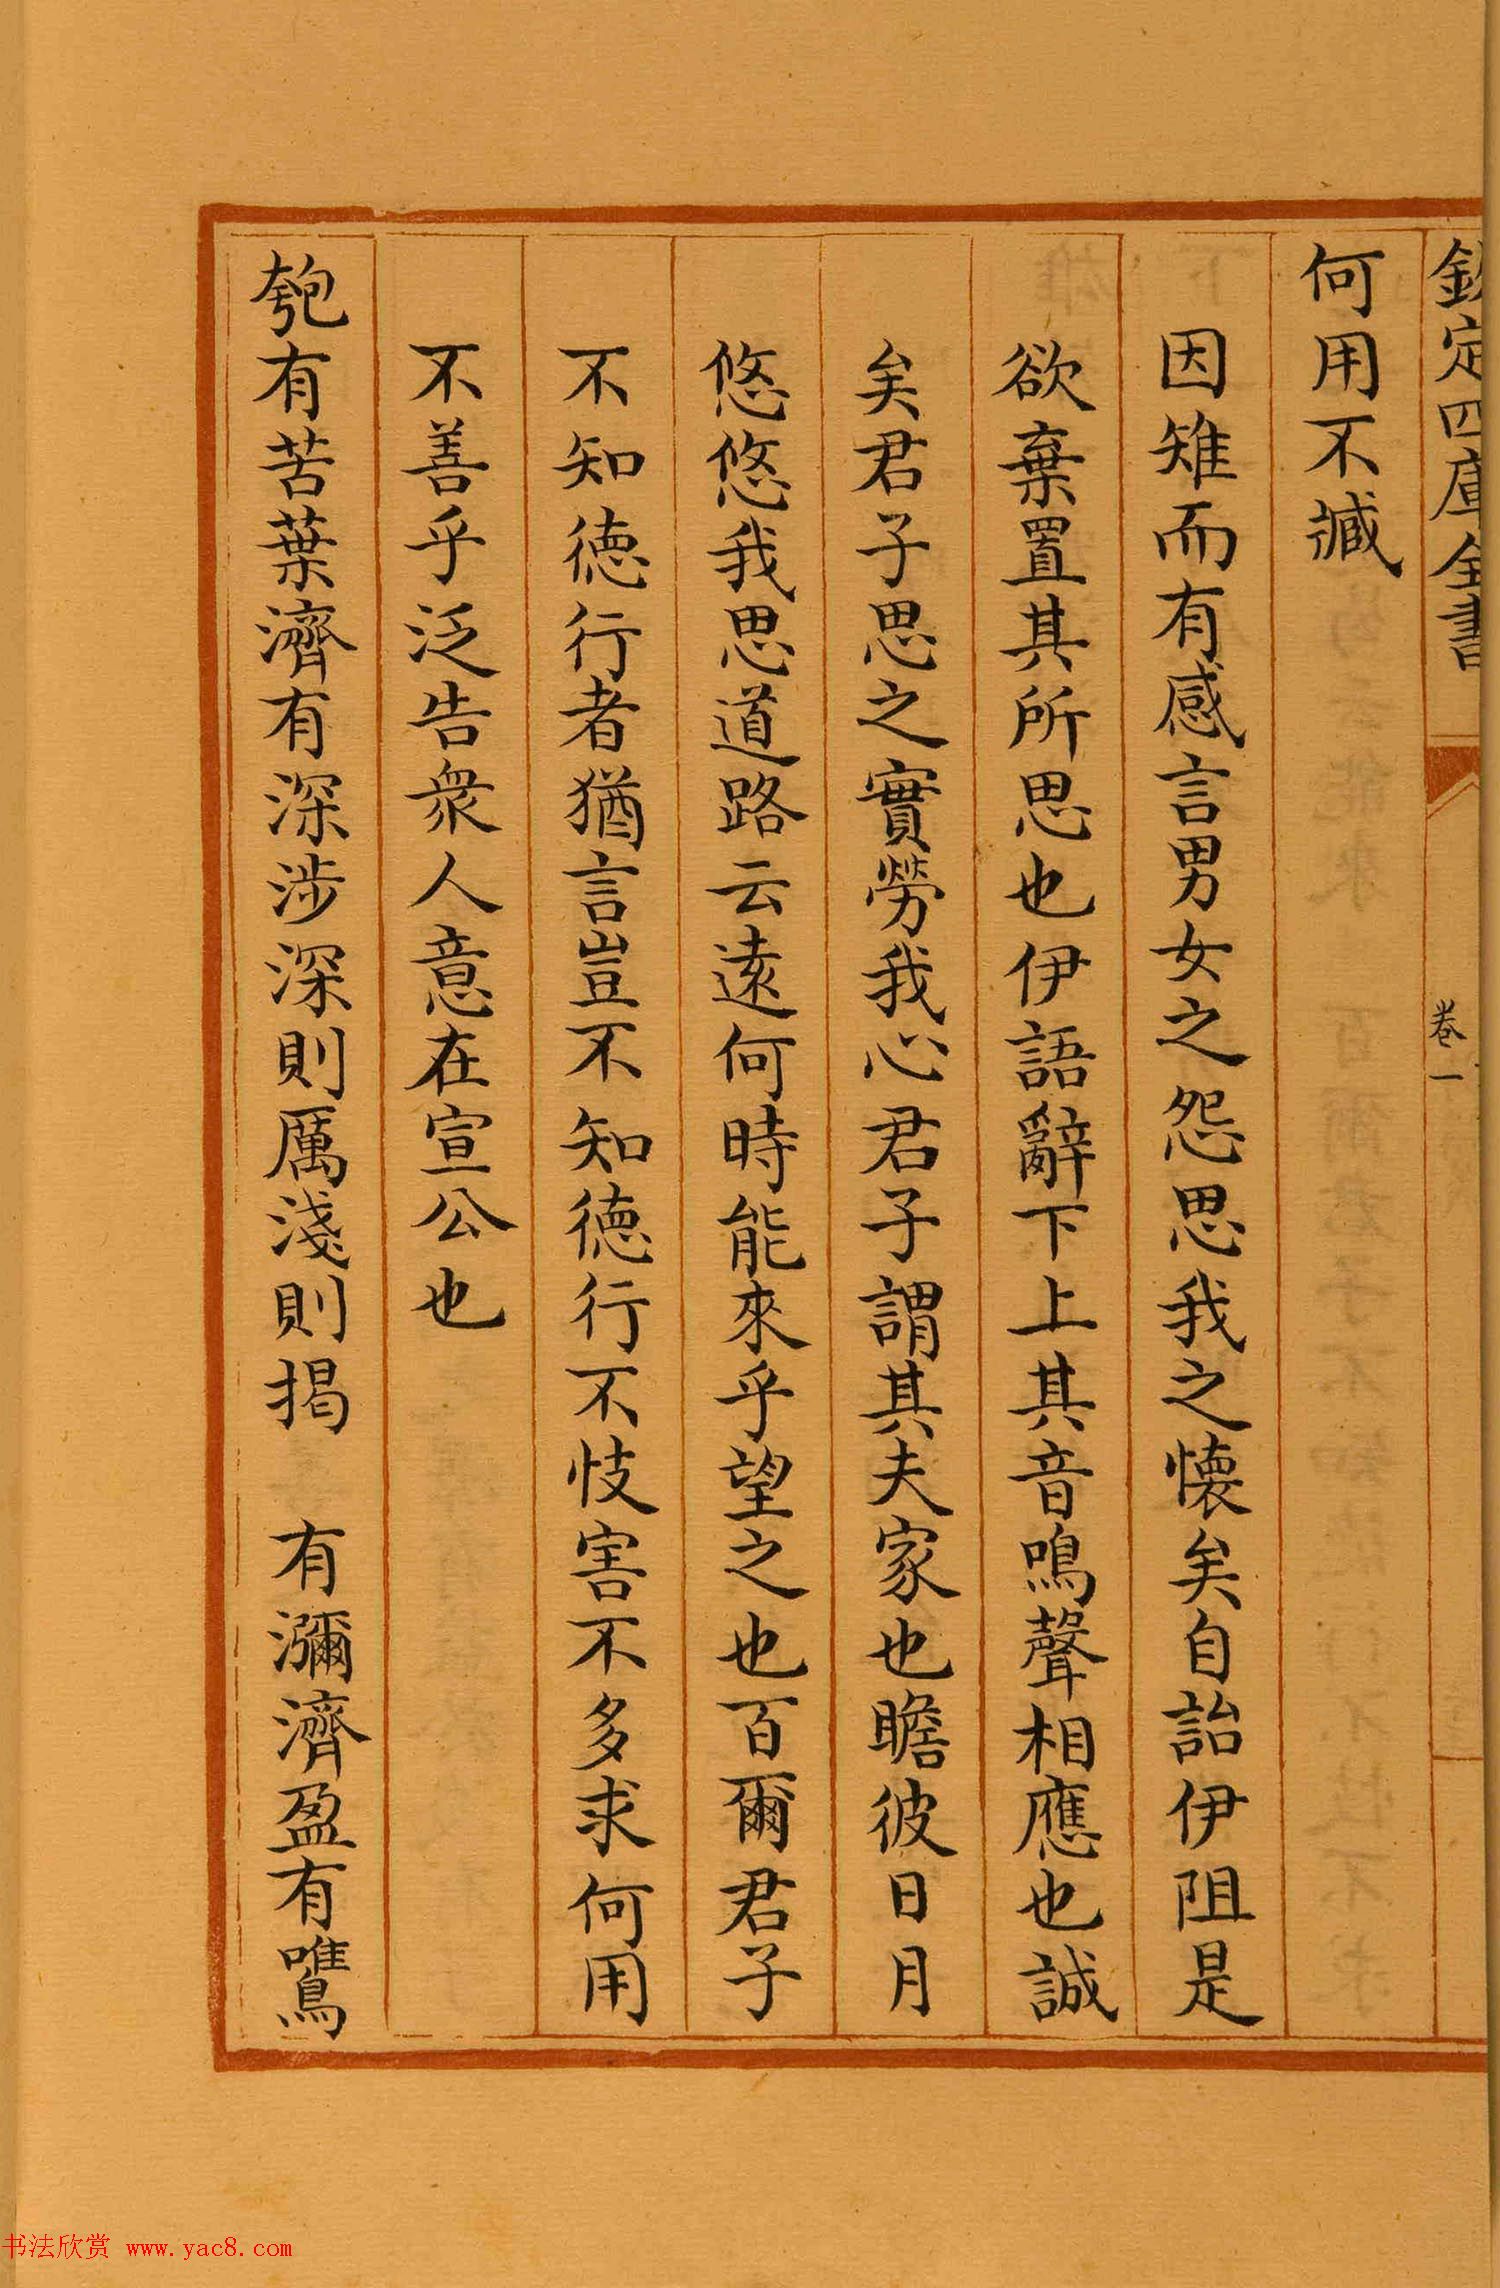 欽定四庫全書
卷一
何用不臧
因雉而有感言男女之怨思我之懷矣自詒伊阻是
欲棄置其所思也伊語辭下上其音鳴聲相應也誠
矣君子思之實勞我心君子謂其夫家也瞻彼日月
悠悠我思道路云遠何時能來乎望之也百爾君子
不知德行者猶言豈不知德行不忮害不多求何用
不善乎泛告衆人意在宣公也
匏有苦葉濟有深涉深則厲淺則揭　有瀰濟盈有鷕
书法欣赏 www.yac8.com